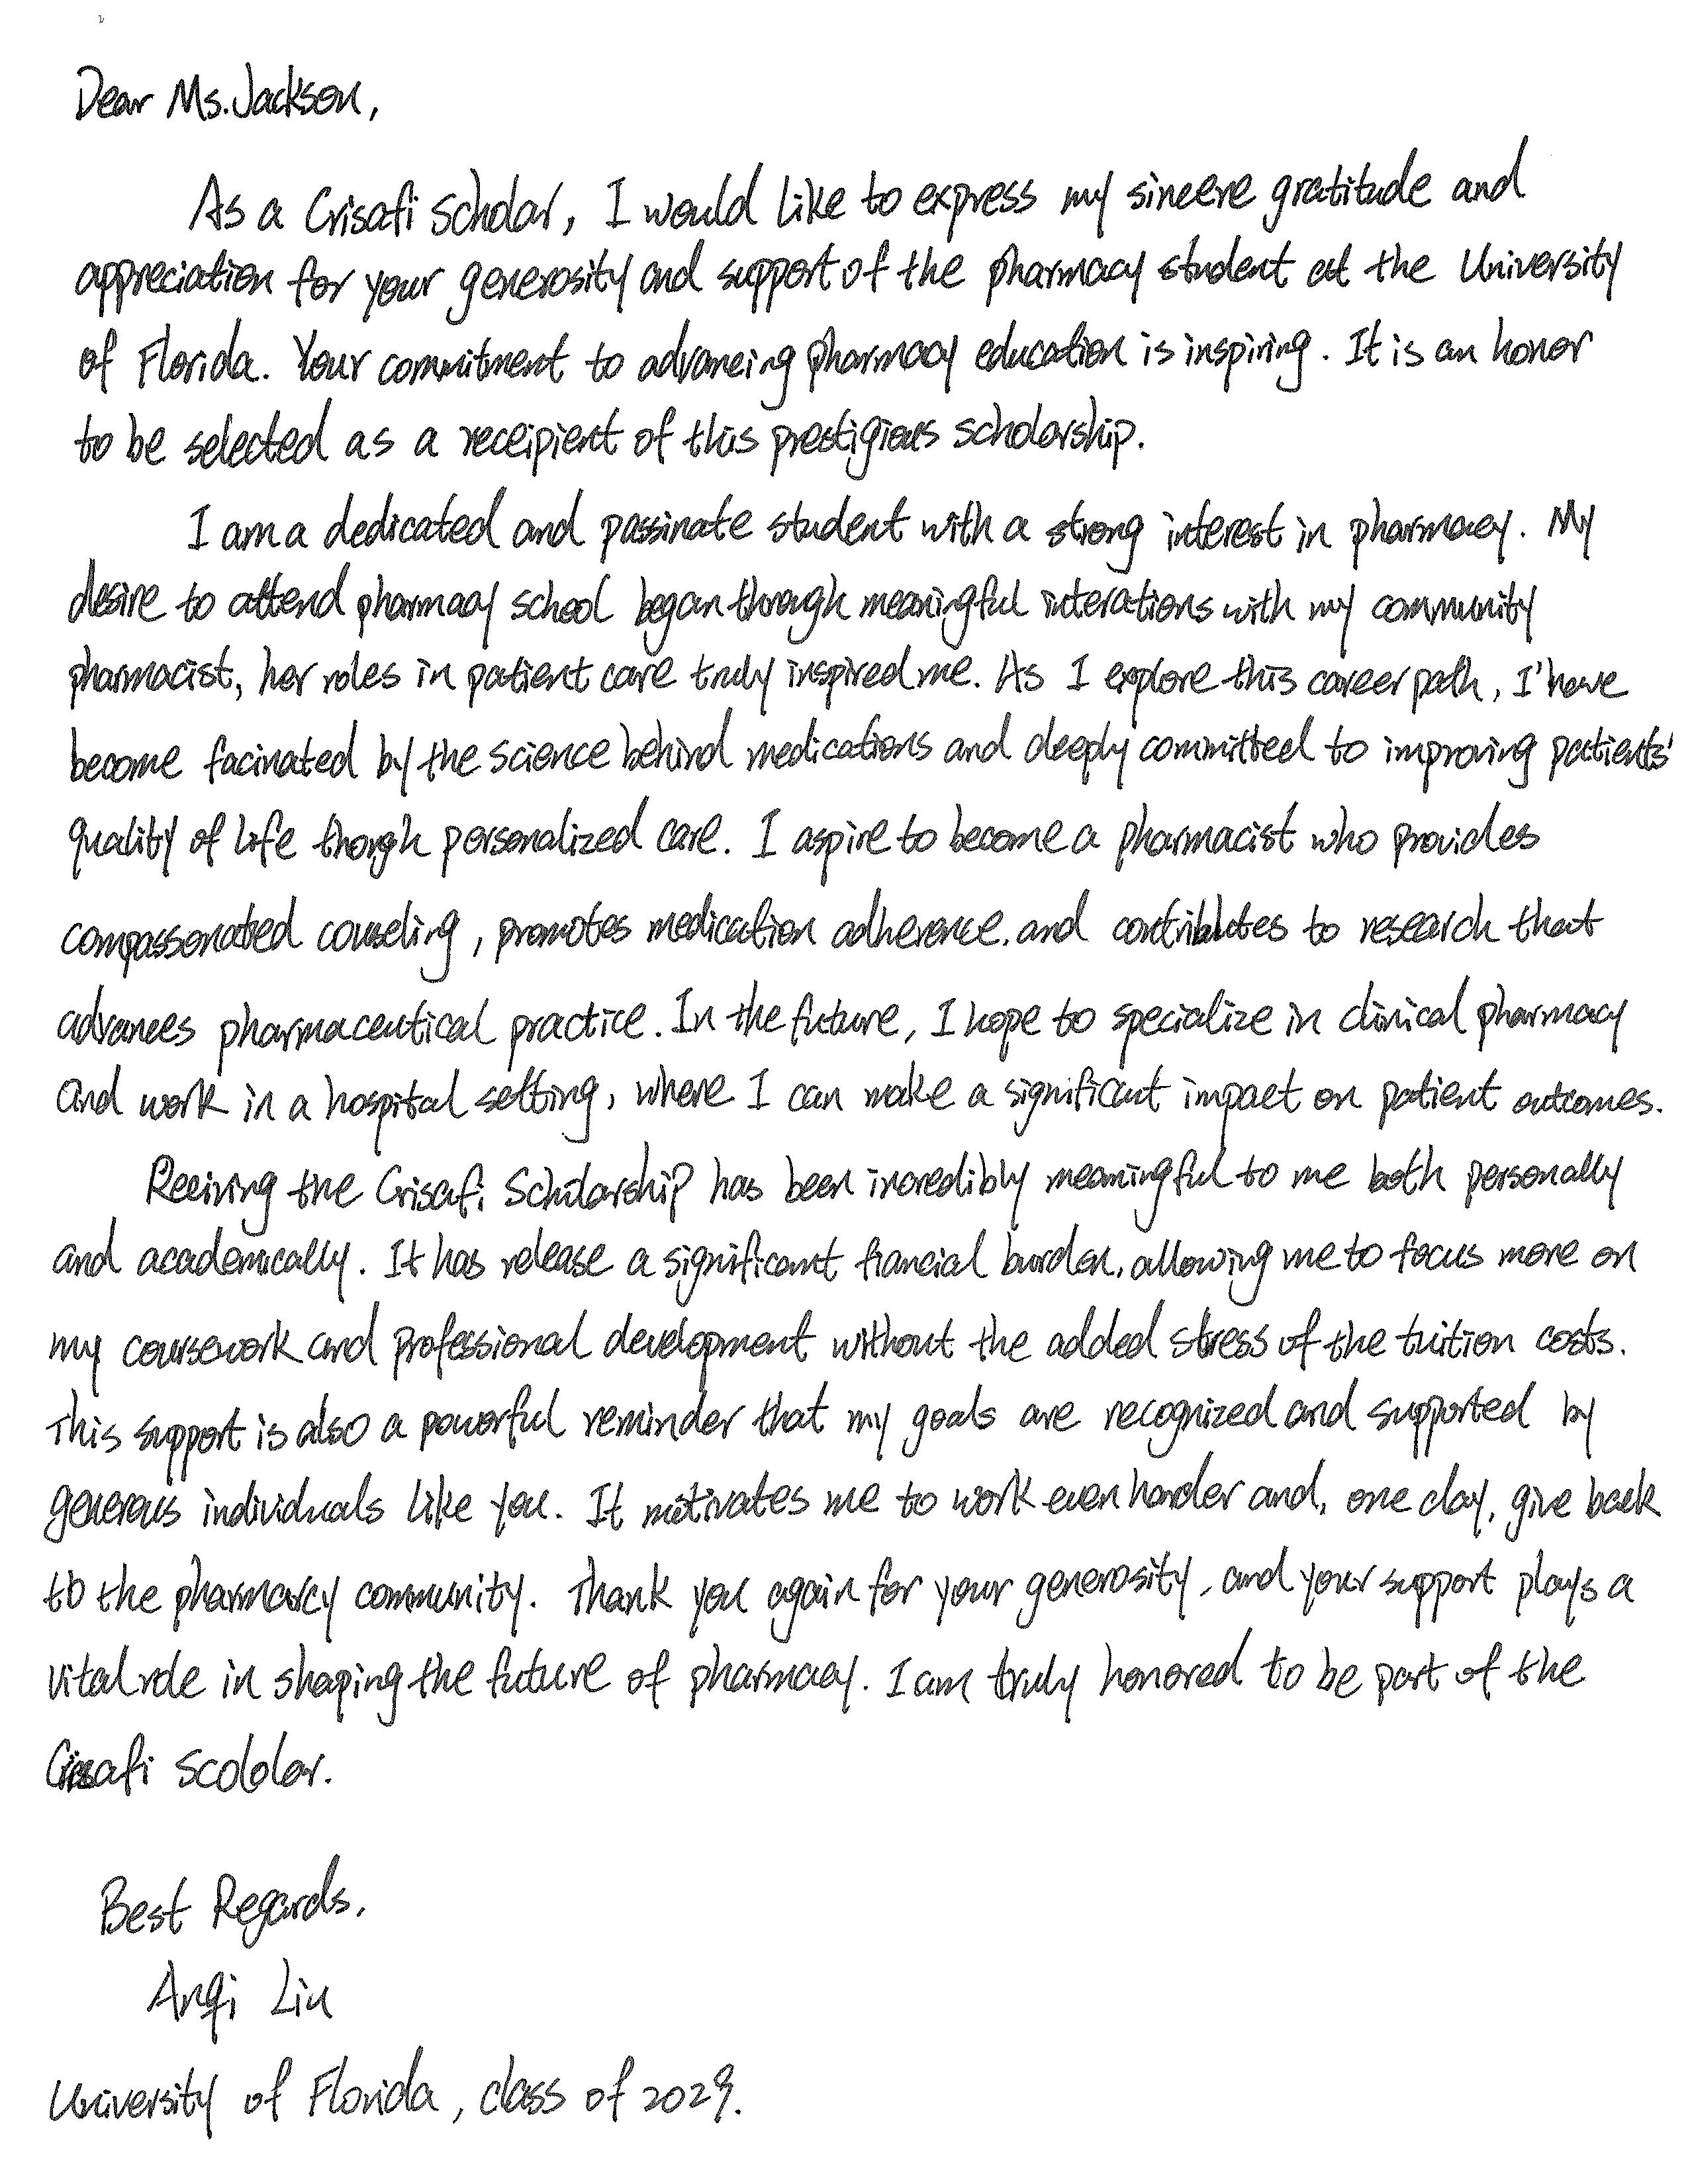 Dear Ms. Jackson,
As a Crisafi Scholar, I would like to express my sincere gratitude and
appreciation for your generosity and support of the pharmacy student at the University
of Florida. Your commitment to advancing pharmacy education is inspiring. It is an honor
to be selected as a receipient of this prestigious scholarship.
I am a dedicated and passinate student with a strong interest in pharmacy. My
desire to attend pharmacy school began through meaningful interations with my community
pharmacist, her roles in patient care truly inspired me. As I explore this career path, I'have
become facinated by the science behind medications and deeply committed to improving patients'
quality of life thorgh personalized care. I aspire to become a pharmacist who provides
compassonated counseling, promotes medication adherence, and contributes to research that
advances pharmaceutical practice. In the future, I hope to specialize in clinical pharmacy
and work in a hospital setting, where I can make a significant impact on patient outcomes.
Receiving the Crisafi Scholarship has been incredibly meaningful to me both personally
and academically. It has release a significant financial burden, allowing me to focus more on
my coursework and professional development without the added stress of the tuition costs.
This support is also a powerful reminder that my goals are recognized and supported by
generous individuals like you. It motivates me to work even harder and, one day, give back
to the pharmacy community. Thank you again for your generosity, and your support plays a
vital role in shaping the future of pharmacy. I am truly honored to be part of the
Crisafi Scololar.
Best Regards,
Anqi Liu
University of Florida, class of 2029.